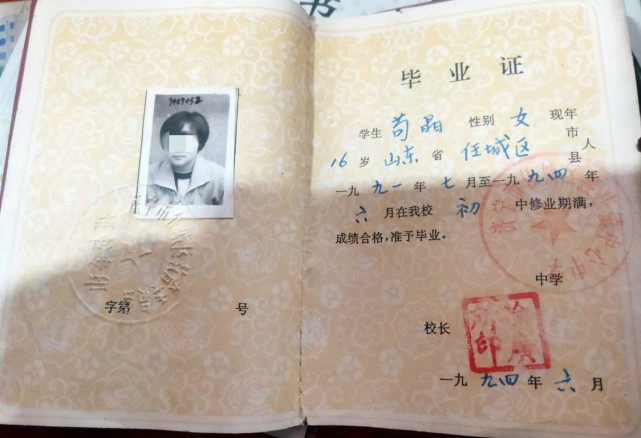 书
毕业证
学生 苟晶 性别 女 现年
16 岁 山东 省 任城区 市县 人
一九九一年 七月至一九九四年
六月在我校 初 中修业期满,
成绩合格,准予毕业。
中学
字第 号
校长
一九九四年六月